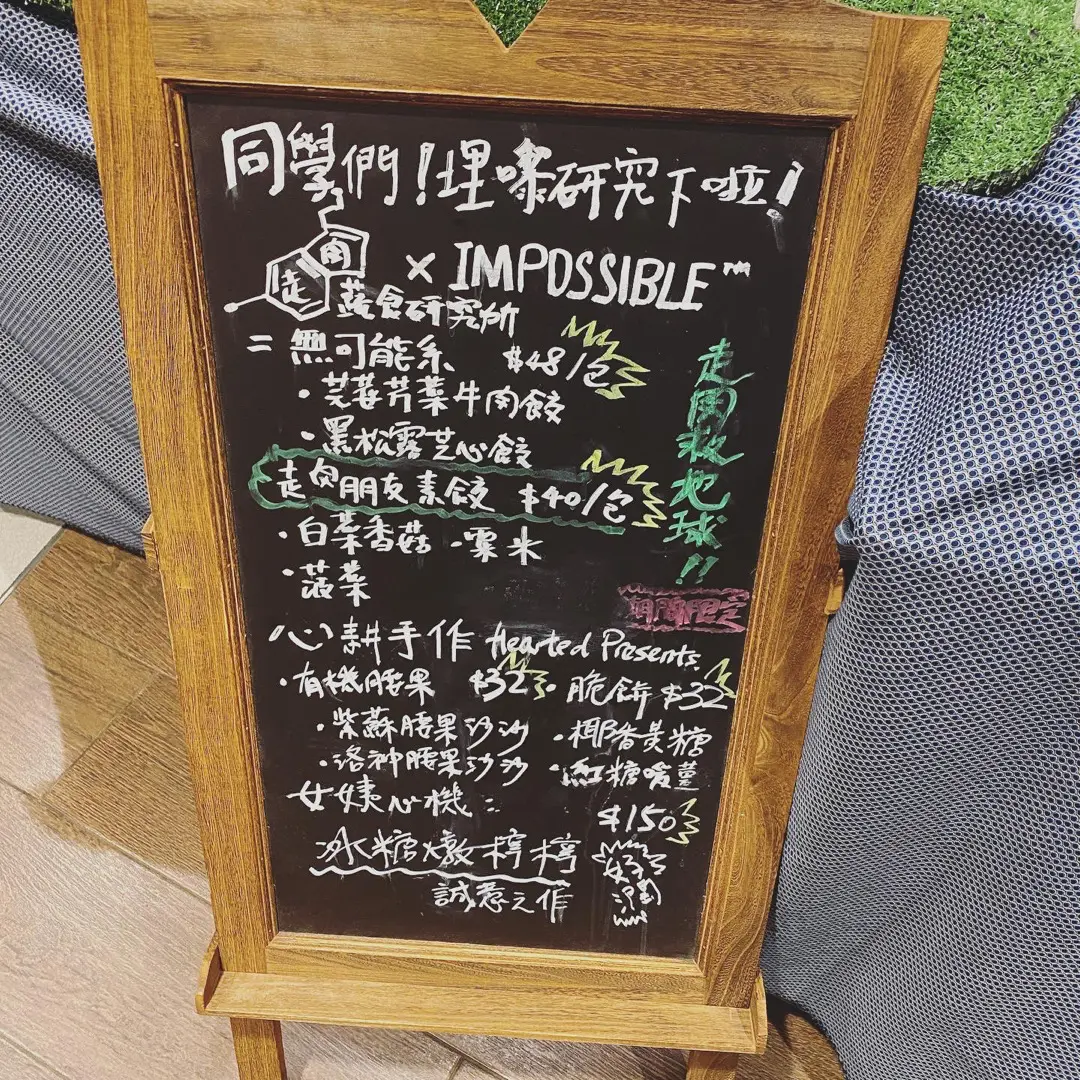 同學們！埋嚟研究下啦！
走肉 × IMPOSSIBLE™
蔬食研究所
= 無可能系 $48/包
・芫荽芹菜牛肉餃
・黑松露芝心餃
走肉朋友素餃 $40/包
・白菜香菇 ・粟米
・菠菜
走肉救地球!!
期間限定
心耕手作 Hearted Presents
・有機腰果 $32 ・脆餅 $32
・紫蘇腰果沙沙 ・椰香黃糖
・洛神腰果沙沙 ・紅糖暖薑
女姨心機： $150
冰糖燉檸檸
誠意之作